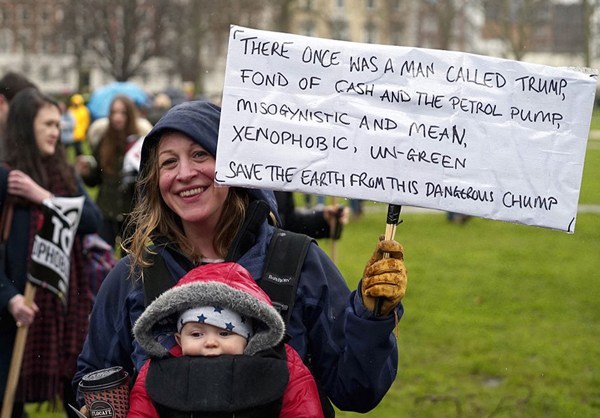 "THERE ONCE WAS A MAN CALLED TRUMP,
FOND OF CASH AND THE PETROL PUMP,
MISOGYNISTIC AND MEAN,
XENOPHOBIC, UN-GREEN
SAVE THE EARTH FROM THIS DANGEROUS CHUMP"
TO
OPHOBI